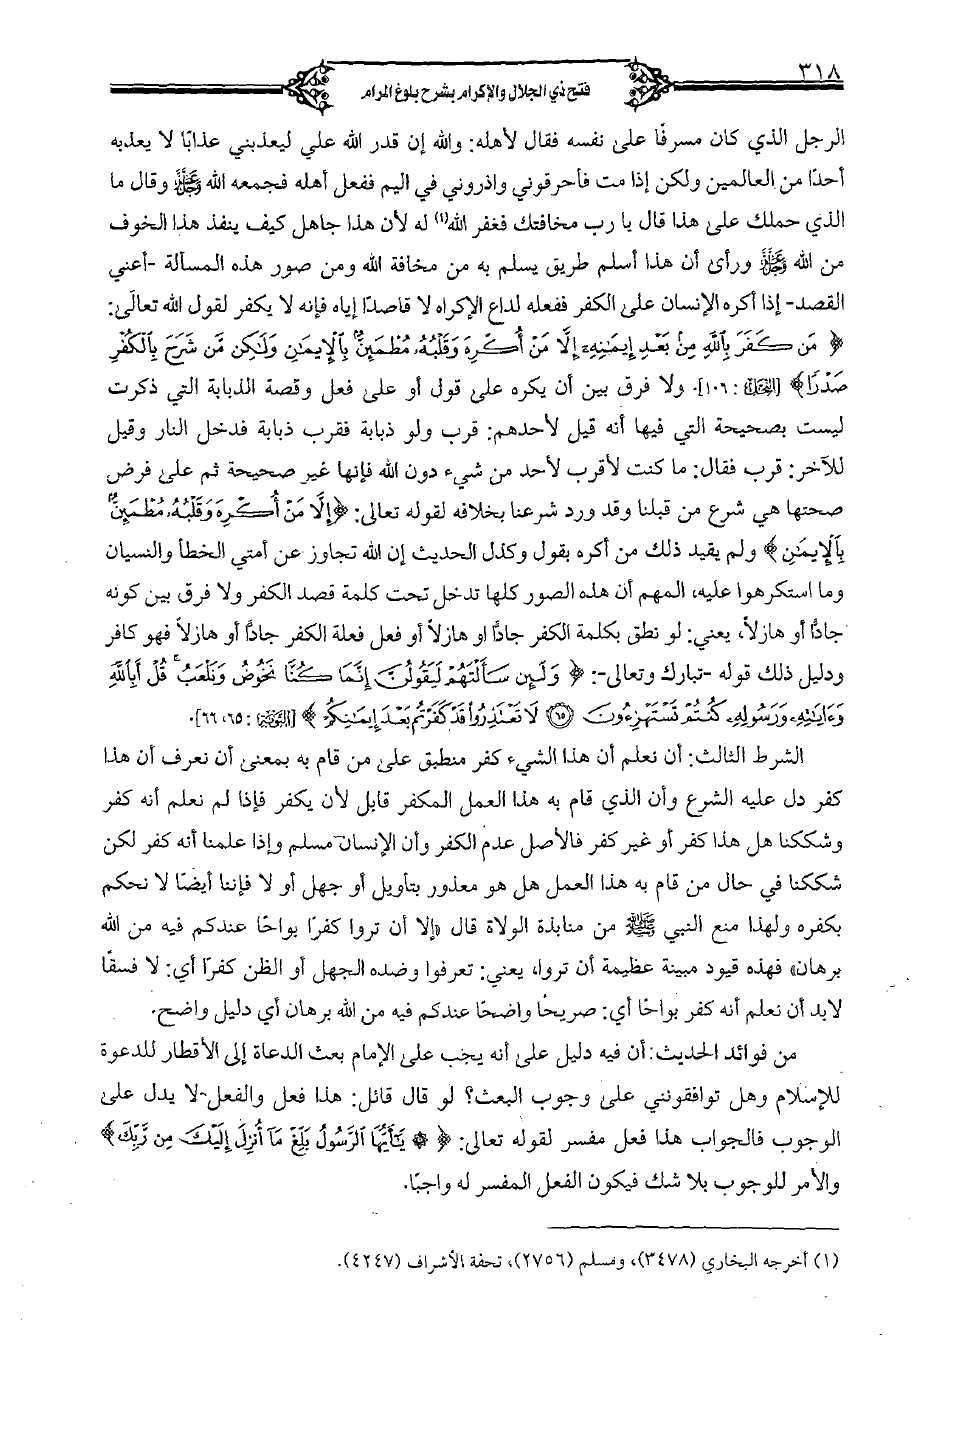 ٣١٨
فتح ذي الجلال والإكرام بشرح بلوغ المرام
الرجل الذي كان مسرفًا على نفسه فقال لأهله: والله إن قدر الله علي ليعذبني عذابًا لا يعذبه
أحدًا من العالمين ولكن إذا مت فأحرقوني واذروني في اليم ففعل أهله فجمعه الله ﷿ وقال ما
الذي حملك على هذا قال يا رب مخافتك فغفر الله(١) له لأن هذا جاهل كيف ينفذ هذا الخوف
من الله ﷿ ورأى أن هذا أسلم طريق يسلم به من مخافة الله ومن صور هذه المسألة -أعني
القصد- إذا أكره الإنسان على الكفر ففعله لداع الإكراه لا قاصدًا إياه فإنه لا يكفر لقول الله تعالى:
﴿ مَن كَفَرَ بِٱللَّهِ مِنۢ بَعْدِ إِيمَٰنِهِۦٓ إِلَّا مَنْ أُكْرِهَ وَقَلْبُهُۥ مُطْمَئِنٌّۢ بِٱلْإِيمَٰنِ وَلَٰكِن مَّن شَرَحَ بِٱلْكُفْرِ
صَدْرًا﴾ [النحل: ١٠٦]. ولا فرق بين أن يكره على قول أو على فعل وقصة الذبابة التي ذكرت
ليست بصحيحة التي فيها أنه قيل لأحدهم: قرب ولو ذبابة فقرب ذبابة فدخل النار وقيل
للآخر: قرب فقال: ما كنت لأقرب لأحد من شيء دون الله فإنها غير صحيحة ثم على فرض
صحتها هي شرع من قبلنا وقد ورد شرعنا بخلافه لقوله تعالى: ﴿إِلَّا مَنْ أُكْرِهَ وَقَلْبُهُۥ مُطْمَئِنٌّۢ
بِٱلْإِيمَٰنِ﴾ ولم يقيد ذلك من أكره بقول وكذل الحديث إن الله تجاوز عن أمتي الخطأ والنسيان
وما استكرهوا عليه، المهم أن هذه الصور كلها تدخل تحت كلمة قصد الكفر ولا فرق بين كونه
جادًّا أو هازلاً، يعني: لو نطق بكلمة الكفر جادًّا او هازلاً أو فعل فعلة الكفر جادًّا أو هازلاً فهو كافر
ودليل ذلك قوله -تبارك وتعالى-: ﴿ وَلَئِن سَأَلْتَهُمْ لَيَقُولُنَّ إِنَّمَا كُنَّا نَخُوضُ وَنَلْعَبُ ۚ قُلْ أَبِٱللَّهِ
وَءَايَٰتِهِۦ وَرَسُولِهِۦ كُنتُمْ تَسْتَهْزِءُونَ ﴿٦٥﴾ لَا تَعْتَذِرُوا۟ قَدْ كَفَرْتُم بَعْدَ إِيمَٰنِكُمْ ﴾ [التوبة: ٦٥، ٦٦].
الشرط الثالث: أن نعلم أن هذا الشيء كفر منطبق على من قام به بمعنى أن نعرف أن هذا
كفر دل عليه الشرع وأن الذي قام به هذا العمل المكفر قابل لأن يكفر فإذا لم نعلم أنه كفر
وشككنا هل هذا كفر أو غير كفر فالأصل عدم الكفر وأن الإنسان مسلم وإذا علمنا أنه كفر لكن
شككنا في حال من قام به هذا العمل هل هو معذور بتأويل أو جهل أو لا فإننا أيضًا لا نحكم
بكفره ولهذا منع النبي ﷺ من منابذة الولاة قال «إلا أن تروا كفرًا بواحًا عندكم فيه من الله
برهان» فهذه قيود مبينة عظيمة أن تروا، يعني: تعرفوا وضده الجهل أو الظن كفرًا أي: لا فسقًا
لابد أن نعلم أنه كفر بواحًا أي: صريحًا واضحًا عندكم فيه من الله برهان أي دليل واضح.
من فوائد الحديث: أن فيه دليل على أنه يجب على الإمام بعث الدعاة إلى الأقطار للدعوة
للإسلام وهل توافقونني على وجوب البعث؟ لو قال قائل: هذا فعل والفعل لا يدل على
الوجوب فالجواب هذا فعل مفسر لقوله تعالى: ﴿ ۞ يَٰٓأَيُّهَا ٱلرَّسُولُ بَلِّغْ مَآ أُنزِلَ إِلَيْكَ مِن رَّبِّكَ ﴾
والأمر للوجوب بلا شك فيكون الفعل المفسر له واجبًا.
(١) أخرجه البخاري (٣٤٧٨)، ومسلم (٢٧٥٦)، تحفة الأشراف (٤٢٤٧).